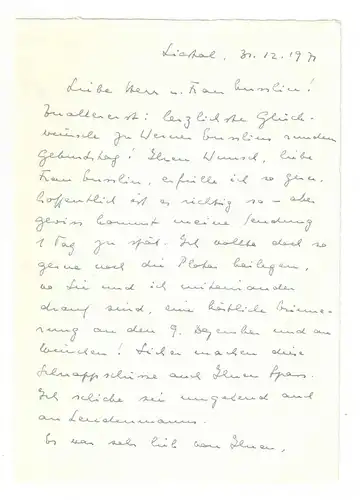 Liestal, 31.12.1971
Liebe Herr u. Frau Gusslin!
Zuallererst: herzlichste Glück-
wünsche zu Werner Gusslins runden
Geburtstag! Ihren Wunsch, liebe
Frau Gusslin, erfülle ich so gern.
hoffentlich ist es richtig so – aber
gewiss kommt meine Sendung
1 Tag zu spät. Ich wollte doch so
gerne noch die Photos beilegen,
wo Sie und ich miteinander
drauf sind, eine köstliche Erinne-
rung an den 9. Dezember und an
München! Sicher machen diese
Schnappschüsse auch Ihnen Spass.
Ich schicke sie umgehend auch
an Lendenmanns.
Es war sehr lieb von Ihnen,